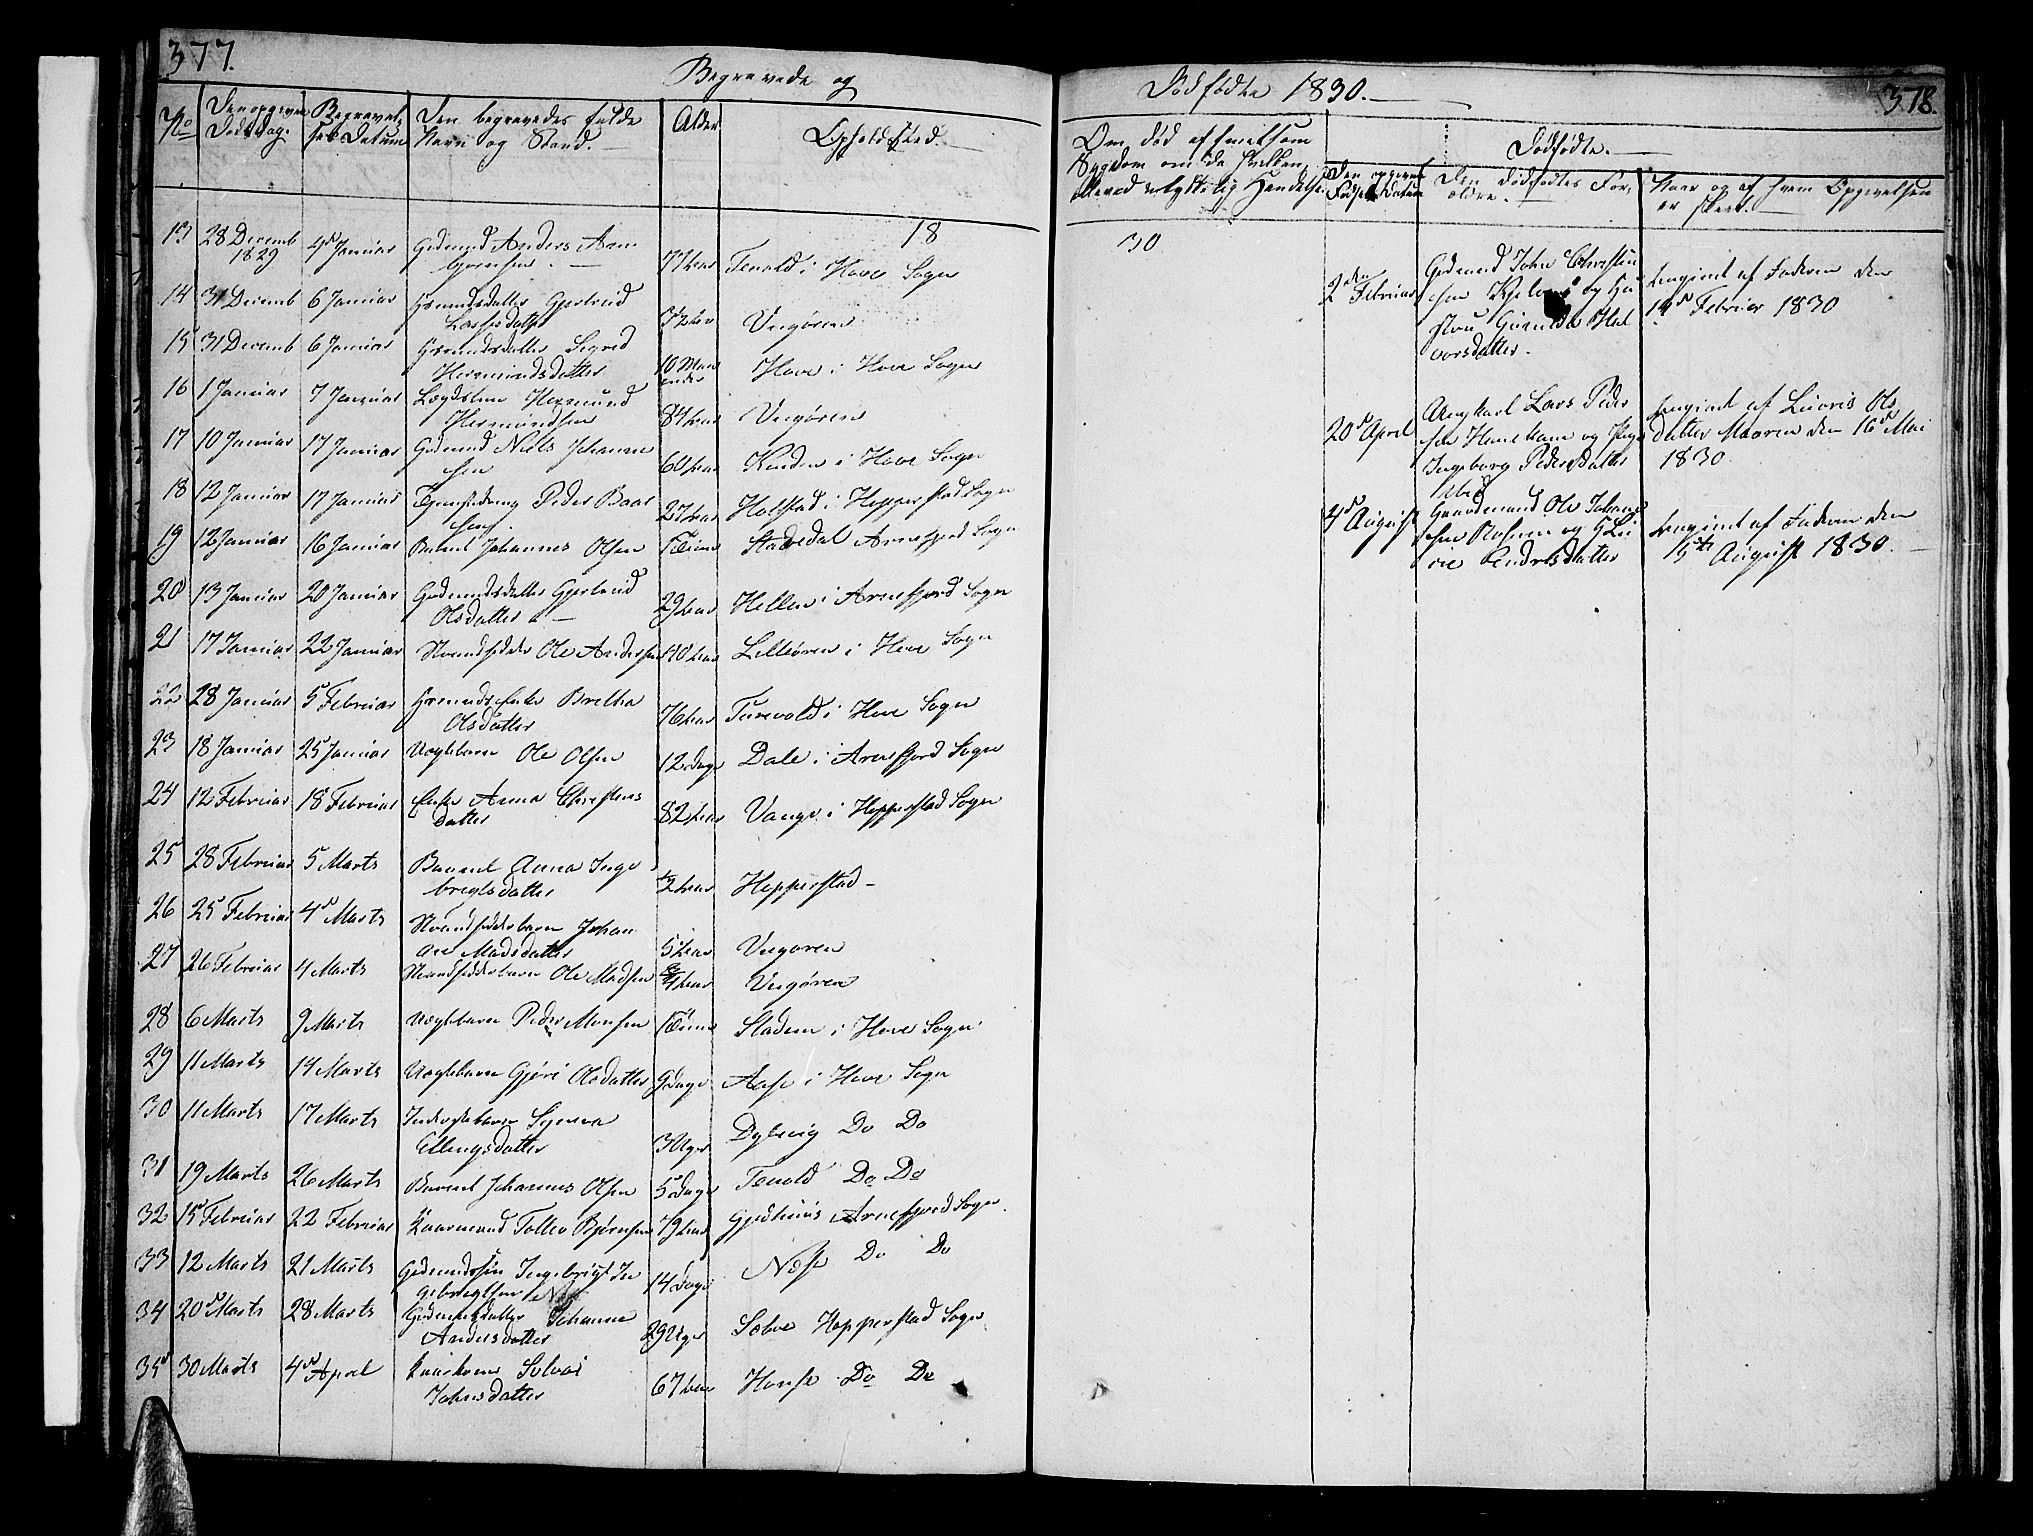 377.
Begravede og
No
Den opgivne
Dødsdag.
Begravel,
ses Datum
Den begravedes fulde
Navn og Stand.
Alder
Opholdsted.
18
13 28 Decemb 4de Januar Gdmand Anders Arn
1829
77 Aar Tenold i Hove Sogn
14 31 Decemb 6 Januar Hsmandsdatter Gjertrud
Lassesdatter 3 Aar Vigøren
15 31 Decemb 6 Januar Hsmandsdatter Sigrid
Hermundsdatter 10 Maa
neder Hove i Hove Sogn
16 1 Januar 7 Januar Lægdslem Hermund
Hermundsen 84 Aar Vigøren
17 10 Januar 17 Januar Gdmand Niels Johanne
sen 60 Aar i Hove Sogn
18 12 Januar 17 Januar Peder Baar
sen. 27 Aar Holstad i Hopperstad Sogn
19 12 Januar 16 Januar Barnet Johannes Olsen 1 Time Stadedal Arnefjord Sogn
20 13 Januar 20 Januar Gdmandsdatter Gjertrud
Olsdatter 29 Aar Hellen i Arnefjord Sogn
21 17 Januar 22 Januar Strandsidder Ole Andersen 40 Aar Lilleøren i Hove Sogn
22 28 Januar 5 Februar Hsmands Enke Bretha
Olsdatter 76 Aar Turvold i Hove Sogn
23 18 Januar 25 Januar Uægtebarn Ole Olsen 12 Dage Dale i Arnefjord Sogn
24 12 Februar 18 Februar Enke Anna Christens
datter 82 Aar Vange i Hopperstad Sogn
25 28 Februar 5 Marts Barnet Anna Inge
brigtsdatter 1/2 Aar Hopperstad
26 25 Februar 4de Marts Strandsidderbarn Johan
ne Madsdatter 5 Aar Vigøren
27 26 Februar 4 Marts Strandsidderbarn Ole Madsen 3/4 Aar Vigøren
28 6 Marts 9 Marts Uægtebarn Peder Monsen 1 Time Stadem i Hove Sogn
29 11 Marts 14 Marts Uægtebarn Gjøri Olsdatter 9 Dage Aase i Hove Sogn
30 11 Marts 17 Marts Inderstebarn Synneva
Ellingsdatter 3 Uger Dylvig Do Do
31 19 Marts 26 Marts Barnet Johannes Olsen 5 Dage Tenold Do Do
32 15 Februar 22 Februar Kaarmand Tollev Bjørnsen 79 Aar Arnefjord Sogn.
33 12 Marts 21 Marts Gdmandssøn Ingebrigt In
gebrigtsen 14 Dage Nese Do Do
34 20de Marts 28 Marts Gdmandsdatter Johanne
Andersdatter 29 Uger Hopperstad Sogn
35 30 Marts 4de April Kaarkone Solvei
Johnsdatter 67 Aar Honse Do Do
Dødfødte 1830.
378.
Om død af smitsom
Sygdom om da hvilken,
eller ved ulykkelig Hændelse
Dødfødte.
Den opgivne
Fødsels Datum
Den Dødfødtes For,
ældre.
Naar og af hvem Opgivelsen
er skeet.
30
2den
Februar
Gdmand John Christen
sen og Hu
stru Gunilda Hal
vorsdatter.
Angivet af Faderen den
14de Februar 1830
20de April
Ungkarl Lars Peder
sen og Pige
Ingeborg Pedersdatter
Angivet af Ols
datter den 16de Mai
1830
4de August
Gaardmand Ole Johanne
sen og
Endresdatter
Angivet af Faderen den
15de August 1830.